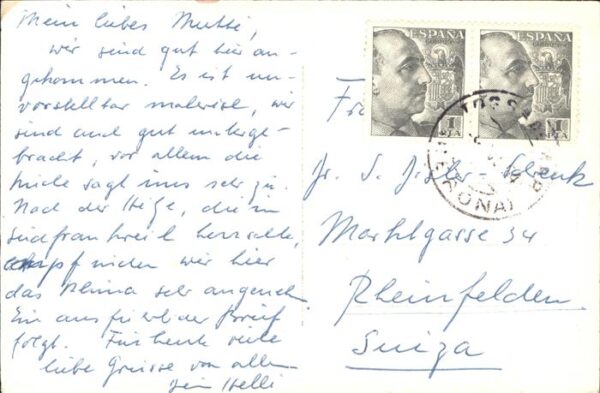 Mein liebes Mutti,
wir sind gut hier an-
gekommen. Es ist un-
vorstellbar malerisch, wir
sind auch gut unterge-
bracht, vor allem die
Küche sagt uns sehr zu.
Nach der Hetze, die in
Südfrankreich herrschte,
empfinden wir hier
das Klima sehr angenehm.
Ein ausführlicher Brief
folgt. Für heute viele
liebe Grüsse von allen
dein Helli
ESPAÑA
CORREOS
1
PTA
ESPAÑA
CORREOS
1
PTA
TOSSA
(GERONA)
Marktgasse 34
Rheinfelden
Suiza